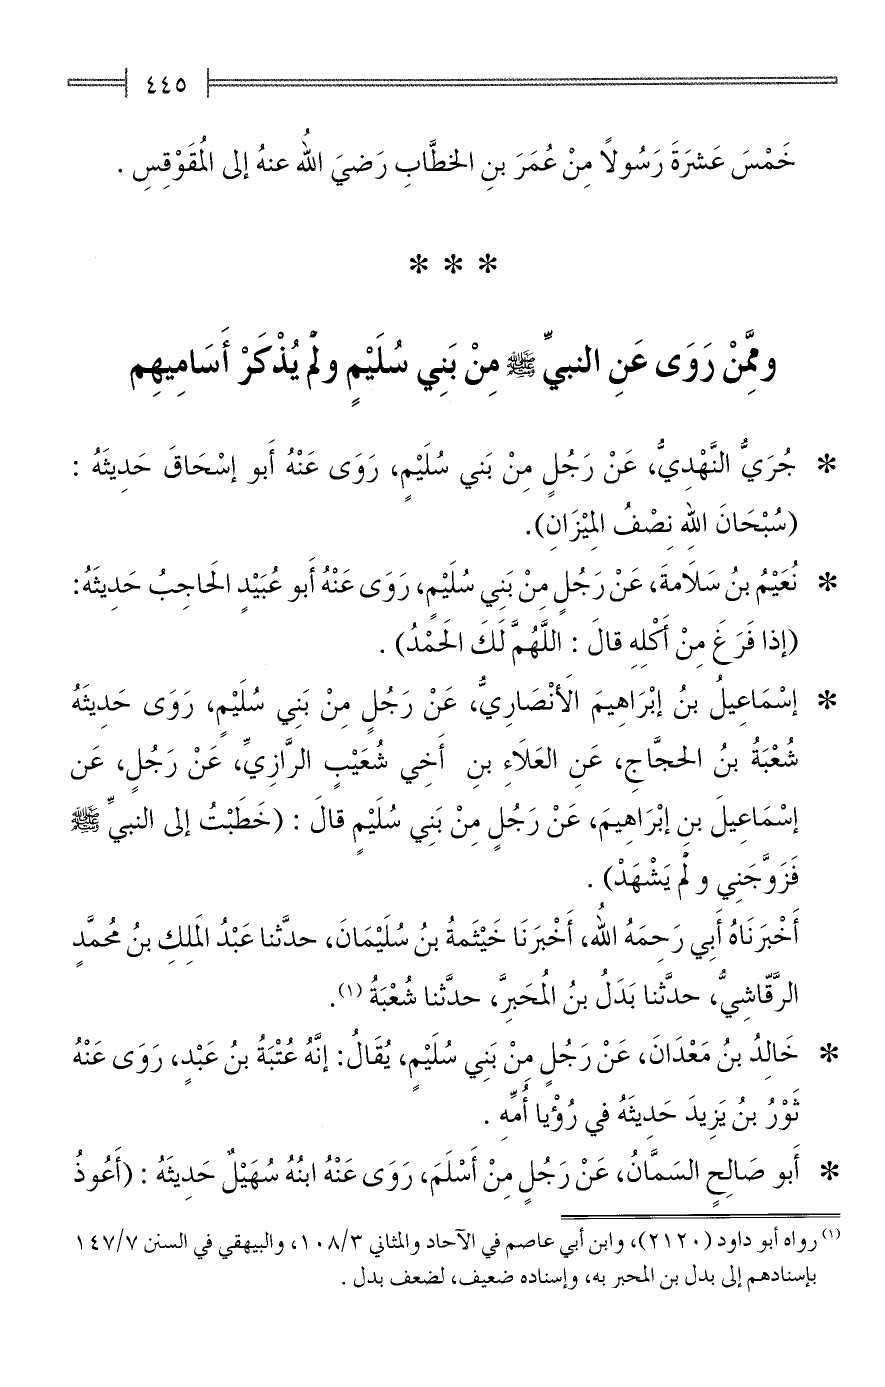 ٤٤٥
خَمْسَ عَشرَةَ رَسُولاً مِنْ عُمَرَ بنِ الخطَّابِ رَضيَ اللهُ عنهُ إلى المُقَوْقِسِ .
* * *
وممَّنْ رَوَى عَنِ النبيِّ ﷺ مِنْ بَنِي سُلَيْمٍ ولَمْ يُذْكَرْ أَسَامِيهِم
* جُرَيُّ النَّهْدِيُّ، عَنْ رَجُلٍ مِنْ بَني سُلَيْمٍ، رَوَى عَنْهُ أَبو إسْحَاقَ حَدِيثَهُ :
(سُبْحَانَ اللهِ نِصْفُ المِيْزَانِ).
* نُعَيْمُ بنُ سَلَامةَ، عَنْ رَجُلٍ مِنْ بَنِي سُلَيْمٍ، رَوَى عَنْهُ أَبو عُبَيْدٍ الحَاجِبُ حَدِيثَهُ:
(إذا فَرَغَ مِنْ أَكْلِهِ قالَ : اللَّهُمَّ لَكَ الحَمْدُ) .
* إسْمَاعِيلُ بنُ إبْرَاهِيمَ الأَنْصَارِيُّ، عَنْ رَجُلٍ مِنْ بَنِي سُلَيْمٍ، رَوَى حَدِيثَهُ
شُعْبَةُ بنُ الحجَّاجِ، عَنِ العَلَاءِ بنِ أَخِي شُعَيْبٍ الرَّازِيِّ، عَنْ رَجُلٍ، عَن
إسْمَاعِيلَ بنِ إبْرَاهِيمَ، عَنْ رَجُلٍ مِنْ بَنِي سُلَيْمٍ قالَ : (خَطَبْتُ إلى النبيِّ ﷺ
فَزَوَّجَنِي ولَمْ يَشْهَدْ) .
أَخْبَرَنَاهُ أَبِي رَحِمَهُ اللهُ، أَخْبَرَنَا خَيْثَمةُ بنُ سُلَيْمَانَ، حدَّثنا عَبْدُ المَلِكِ بنُ مُحمَّدٍ
الرَّقَاشِيُّ، حدَّثنا بَدَلُ بنُ المُحَبرَّ، حدَّثنا شُعْبَةُ (١).
* خَالِدُ بنُ مَعْدَانَ، عَنْ رَجُلٍ مِنْ بَنِي سُلَيْمٍ، يُقَالُ: إنَّهُ عُتْبَةُ بنُ عَبْدٍ، رَوَى عَنْهُ
ثَوْرُ بنُ يَزِيدَ حَدِيثَهُ في رُؤْيا أُمِّهِ .
* أَبو صَالِحٍ السَمَّانُ، عَنْ رَجُلٍ مِنْ أَسْلَمَ، رَوَى عَنْهُ ابنُهُ سُهَيْلٌ حَدِيثَهُ : (أَعُوذُ
(١) رواه أبو داود (٢١٢٠)، وابن أبي عاصم في الآحاد والمثاني ١٠٨/٣، والبيهقي في السنن ١٤٧/٧
بإسنادهم إلى بدل بن المحبر به، وإسناده ضعيف، لضعف بدل .